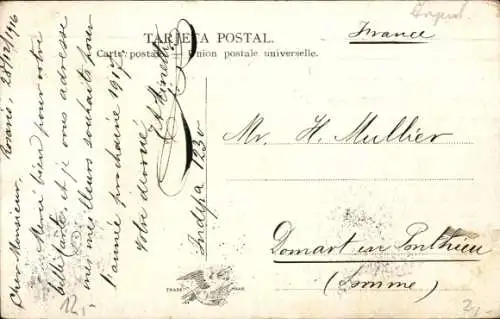 Argent.
TARJETA POSTAL.
France
Carte postale — Union postale universelle.
Rosario, 28/12/1916
Cher Monsieur,
Merci bien pour votre
belle carte et je vous adresse
mes meilleurs souhaits pour
l'année prochaine 1917
Votre dévoué
Indepa 1230
Mr. H. Mullier
Domart en Ponthieu
(Somme)
TRADE MARK
12,-